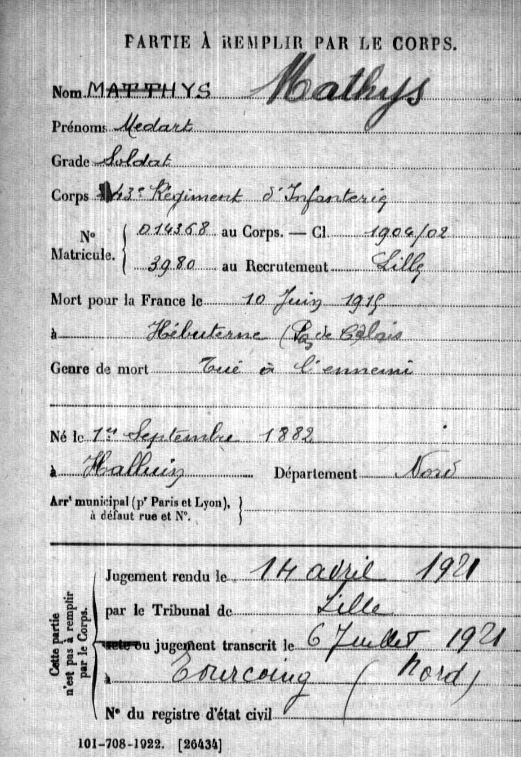 PARTIE À REMPLIR PAR LE CORPS.
Nom MATTHYS Mathys
Prénoms Medart
Grade Soldat
Corps 43e Régiment d'Infanterie
No Matricule. { 014368 au Corps. — Cl 1904/02
3980 au Recrutement Lille
Mort pour la France le 10 Juin 1915
à Hébuterne (Pas de Calais
Genre de mort Tué à l'ennemi
Né le 1er Septembre 1882
à Halluin Département Nord
Arrt municipal (pr Paris et Lyon), }
à défaut rue et No.
Cette partie n'est pas à remplir par le Corps.
Jugement rendu le 14 avril 1921
par le Tribunal de Lille
acte ou jugement transcrit le 6 Juillet 1921
à Tourcoing (Nord)
No du registre d'état civil
101-708-1922. [26434]